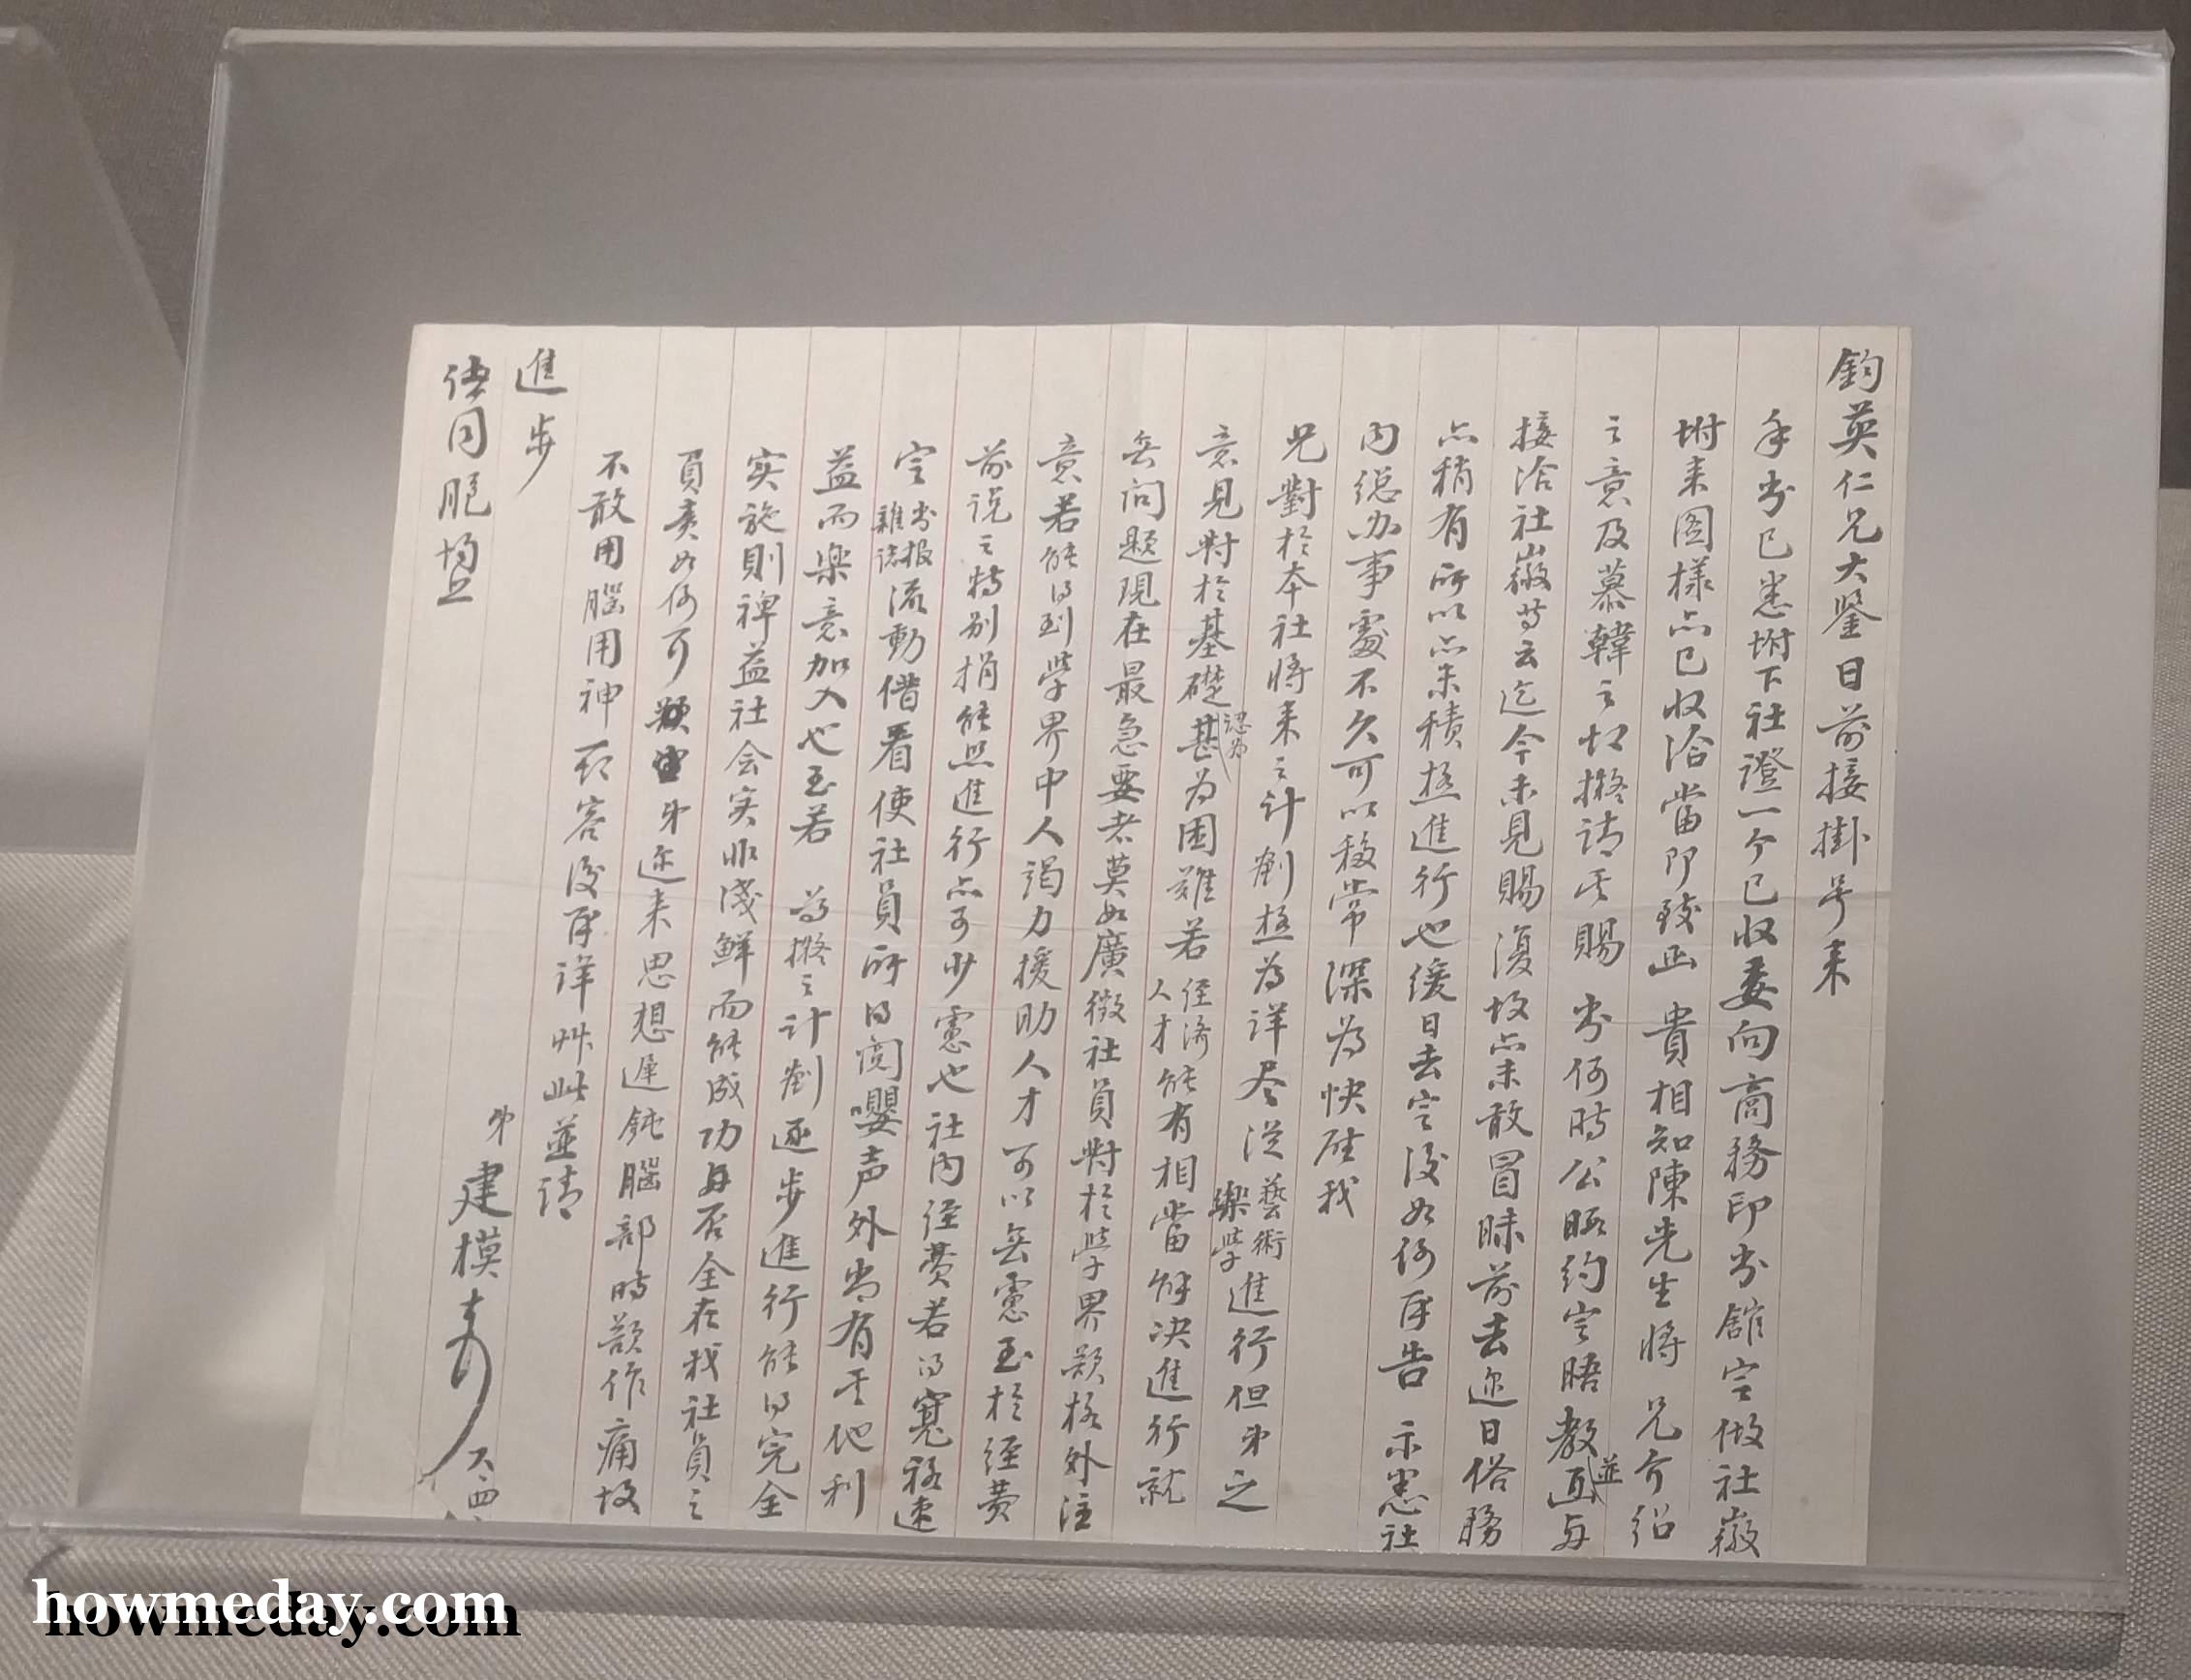 鈞英仁兄大鑒日前接掛号来
手书已悉坿下社證一个已收委向商務印书舘定做社徽
坿来图樣点已收洽當即致函 貴相知陳先生將 兄介绍
之意及慕韓之切擬请其賜 书何時公暇约定晤教並与
接洽社徽节云迄今未見賜復故点未敢冒昧前去迩日俗務
点稍有所以点未積极進行也缓日去定後如何再告 示悉社
内總办事處不久可以移常深为快慰我
兄對於本社將来之計劃极为詳尽從藝術樂学進行但弟之
意見對於基礎認为困難若人才经济能有相當解决進行就
無问题現在最急要者莫如廣徵社員對於学界题格外注
意若能得到学界中人竭力援助人才可以無慮至於经费
前说之特别捐能照進行点可少慮也社内经费若得寬裕速
定书报雜誌流動借看使社員所得閲嚶声外尚有其他利
益而樂意加入也至若 为擬之計劃逐步進行能得完全
实施則裨益社会实非淺鮮而能成功与否全在我社員之
員責如何可 弟迩来思想遲鈍腦部時颇作痛故
不敢用腦用神 容後再详艸此並请
進步
诸同胞均
弟建模
六四
howmeday.com